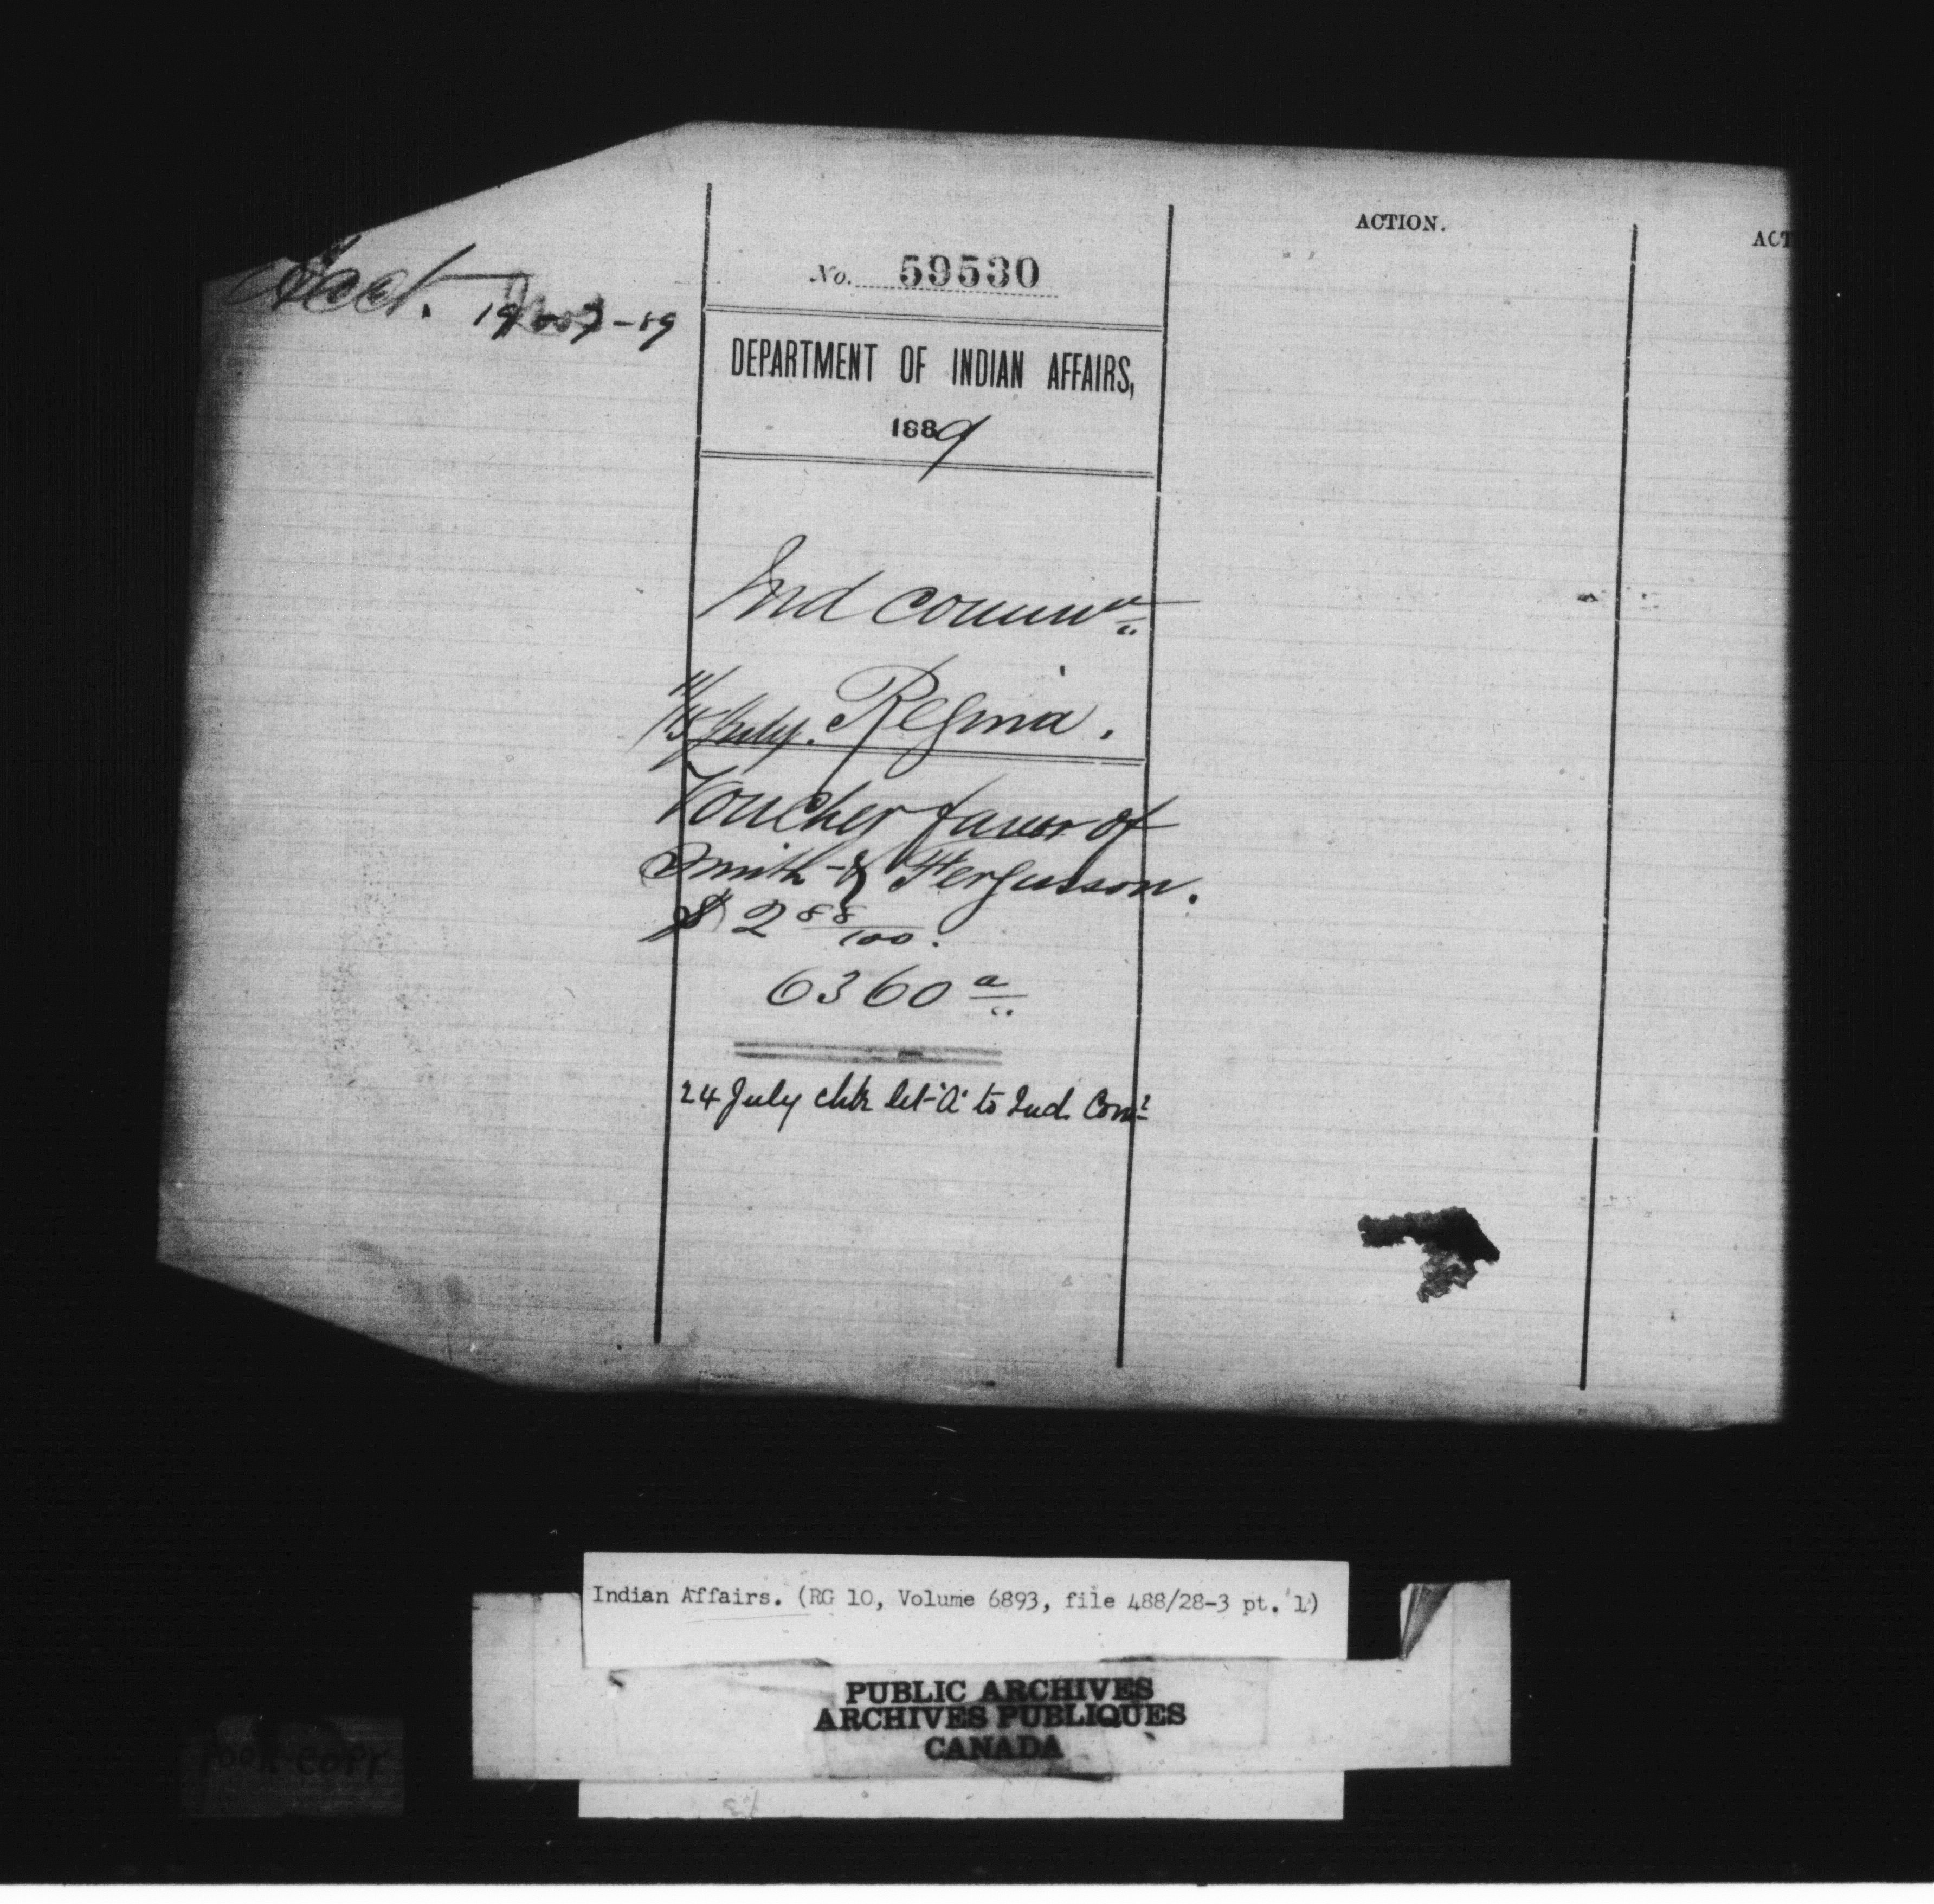 Acct. 19-7-89
No. 59530
DEPARTMENT OF INDIAN AFFAIRS,
1889
Ind Commr
11/15 July. Regina.
Voucher favor of
Smith & Fergusson.
$ 2 88/100.
6360 a
24 July chk let "A" to Ind. Comr
ACTION.
ACT
Indian Affairs. (RG 10, Volume 6893, file 488/28-3 pt. 1)
PUBLIC ARCHIVES
ARCHIVES PUBLIQUES
CANADA
POOR COPY